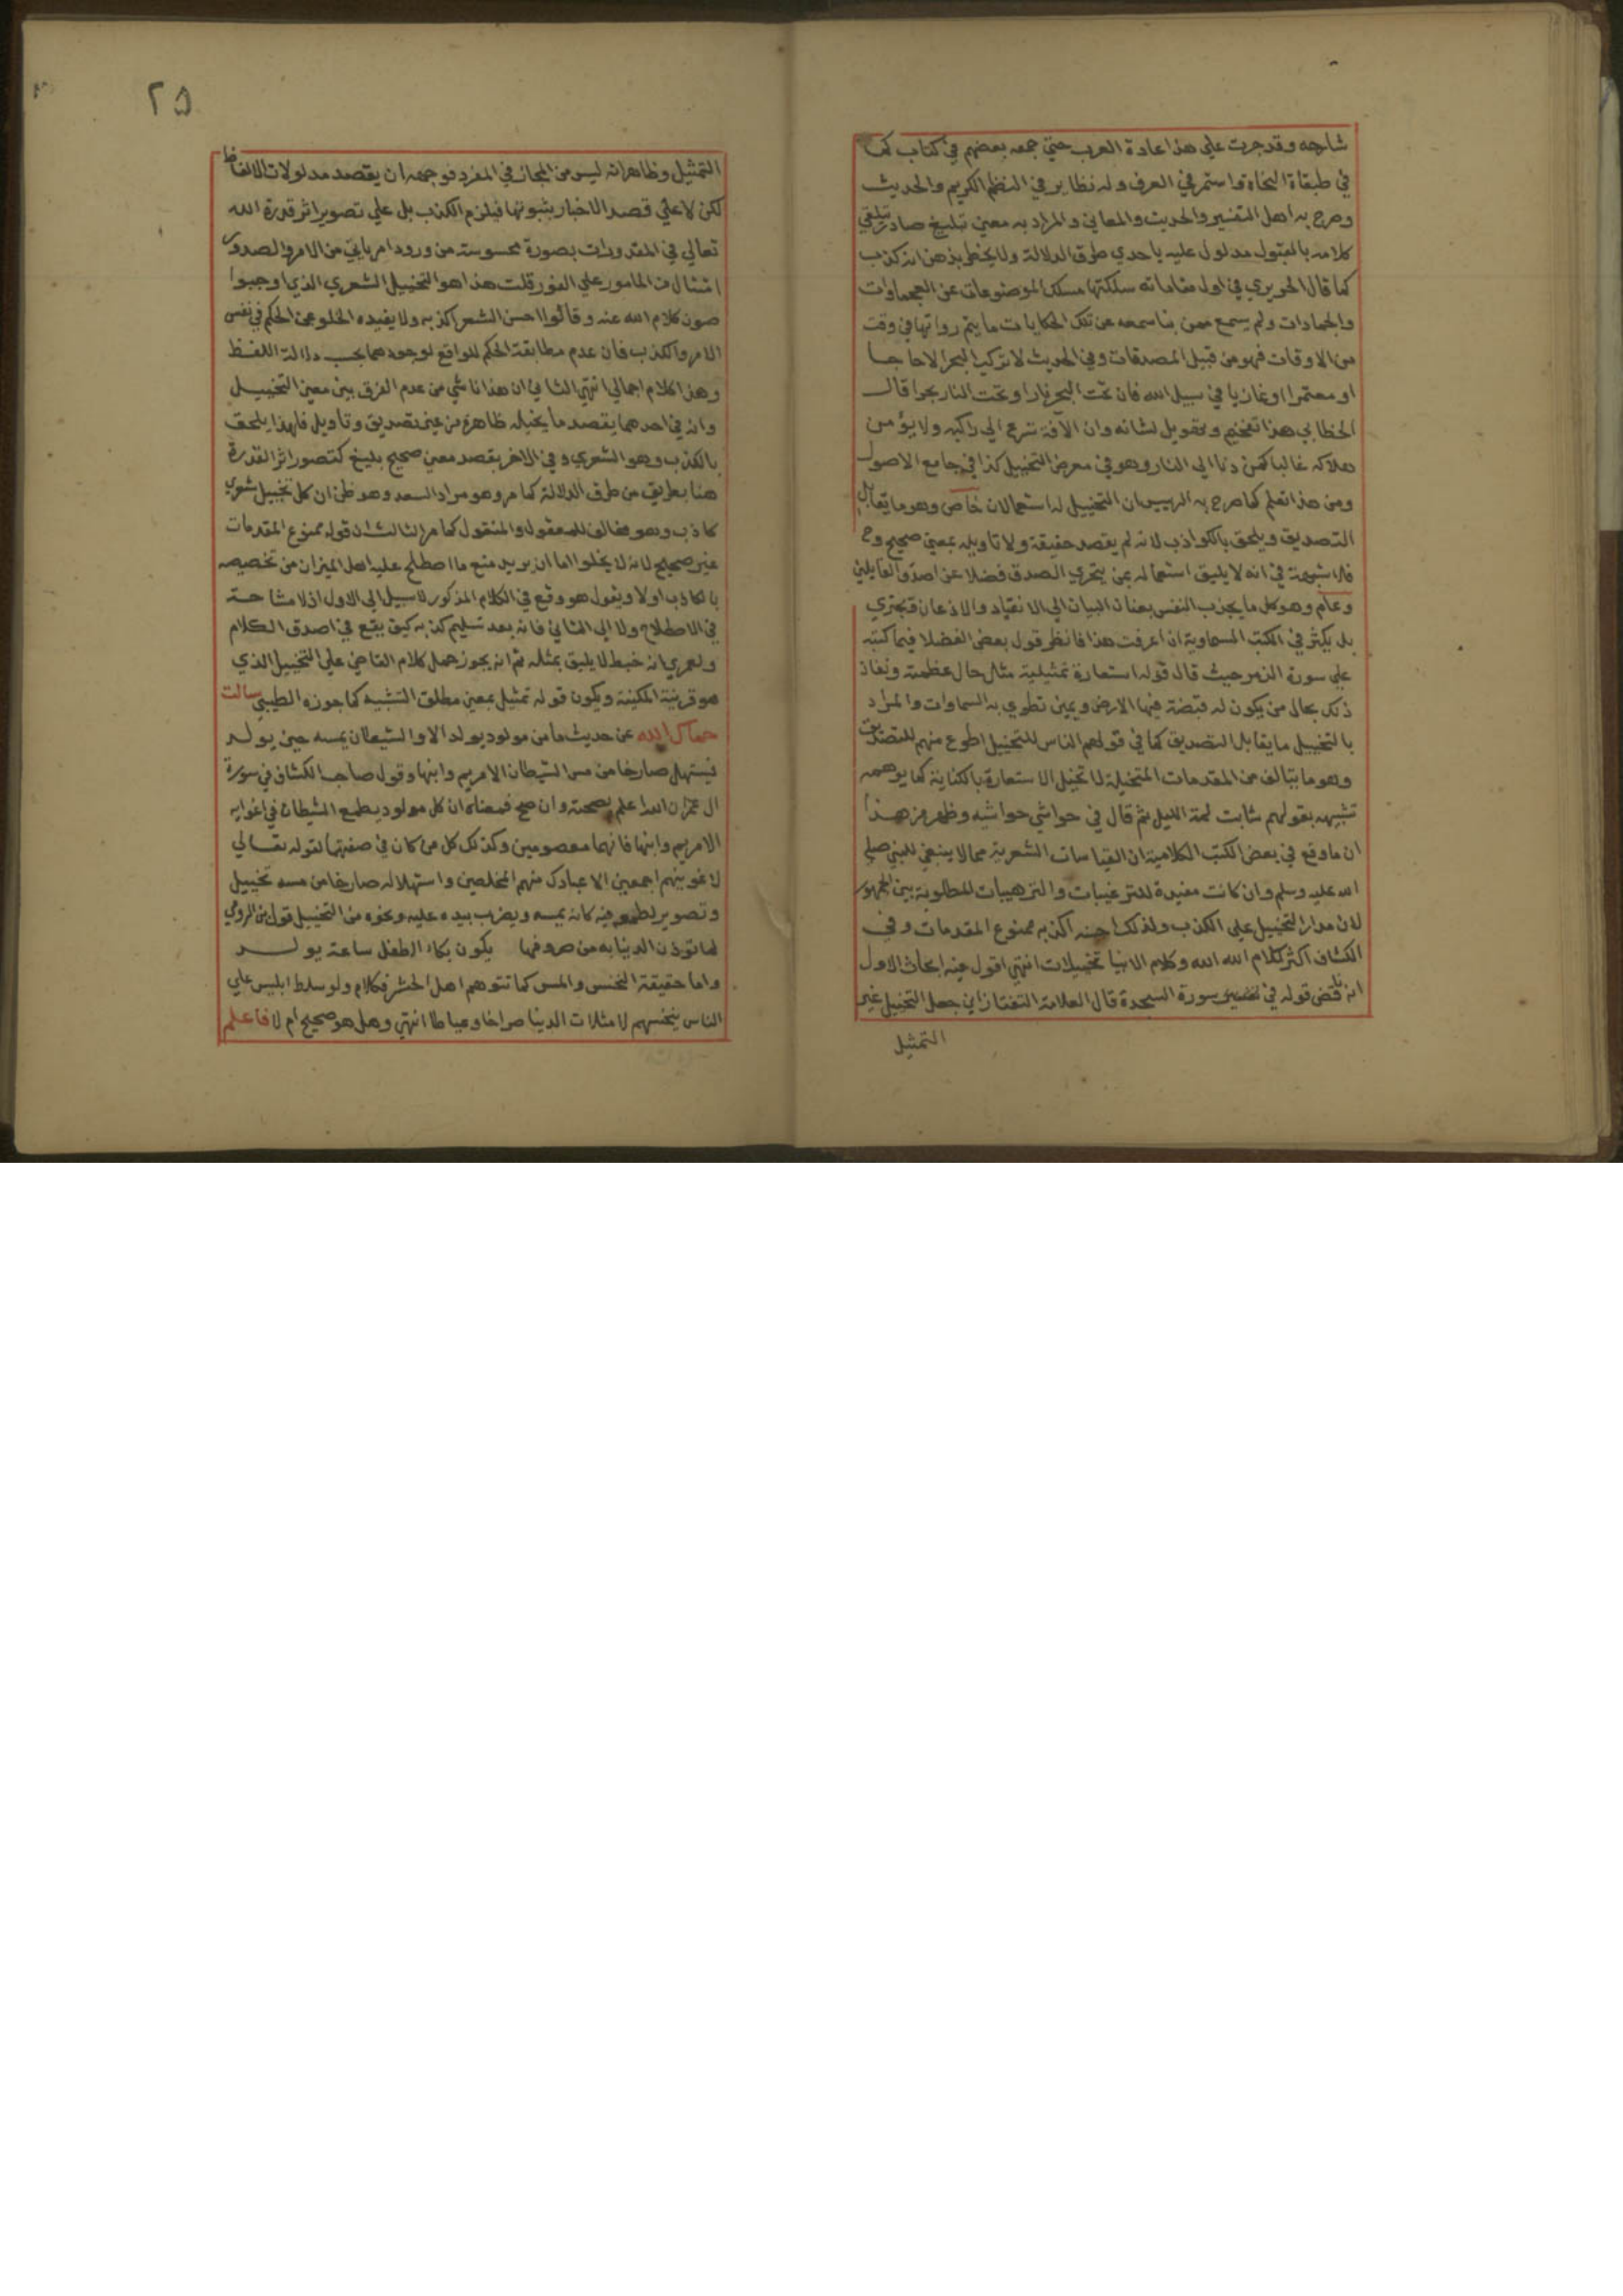 شاجه وقد جرت علي هذا عادة العرب حتي جمعه بعضهم في كتاب كما
في طبقاة النحاة واستمر في العرف وله نظاير في النظم الكريم والحديث
وصرح به اهل التفسير والحديث والمعاني والمراد به معني تبليغ صادر تبلغي
كلامه بالقبول مدلول عليه باحدي طرق الدلالة ولا يخطر بذهن انه كذب
كما قال الحريري في اول مقاماته سلكتها مسلك الموضوعات عن العجماوات
والجمادات ولم يسمع ممن بنا سمعه عن تلك الحكايات ما يتم رواتها في وقت
من الاوقات فهو من قبيل المصدقات وفي الحديث لا تركب البحر الا حاجا
او معتمرا او غازيا في سبيل الله فان تحت البحر نارا وتحت النار بحرا قال
الخطابي هذا تفخيم وتهويل لشانه وان الآفة تسرع الي راكبه ولا يؤمن
هلاكه غالبا كمن دنا الي النار وهو في معرض التخييل كذا في جامع الاصول
ومن هذا تعلم كما صرح به الرييس ان التخييل له استعمالان خاص وهو ما يقابل
التصديق ويلحق بالكواذب لانه لم يقصد حقيقة ولا تاويله بمعني صحيح وح
فلا شبهة في انه لا يليق استعماله بمن يتحري الصدق فضلا عن اصدق القايلين
وعام وهو كل ما يجذب النفس بعنان البيان الي الانقياد والاذعان فيجتري
بل يكثر في الكتب السماوية اذا عرفت هذا فانظر قول بعض الفضلا فيما كتبه
علي سورة الزمر حيث قال قوله استعارة تمثيلية مثال حال عظمته ونفاذ
ذلك بحال من يكون له قبضة فيها الارض ويمين تطوي به السماوات والمراد
بالتخييل ما يقابل التصديق كما في قولهم الناس للتخييل اطوع منهم للتصديق
وهو ما يتالف من المقدمات المتخيلة لا تخيل الاستعارة بالكناية كما يوهمه
تشبيهه بقولهم شابت لمة الليل ثم قال في حواشي حواشيه وظهر من هذا
ان ما وقع في بعض الكتب الكلامية ان القياسات الشعرية مما لا ينبغي للنبي صلي
الله عليه وسلم وان كانت مفيدة للترغيبات والترهيبات المطلوبة بين الجمهور
لان مدار التخييل علي الكذب ولذلك احسنه اكذبه ممنوع المقدمات وفي
الكشاف اكثر كلام الله وكلام الانبيا تخييلات انتهي اقول فيه ابحاث الاول
انه ناقض قوله في تفسير سورة السجدة قال العلامة التفتازاني جعل التخييل غير
التمثيل
٢٥
التمثيل وظاهر انه ليس من المجاز في المفرد فوجهه ان يقصد مدلولات الالفاظ
لكن لا علي قصد الاخبار بثبوتها فيلزم الكذب بل علي تصوير اثر قدرة الله
تعالي في المقدورات بصورة محسوسة من ورود امر ياتي من الامر والصدور
امتثال من المامور علي الفور قلت هذا هو التخييل الشعري الذي اوجبوا
صون كلام الله عنه وقالوا احسن الشعر اكذبه ولا يفيده الخلو عن الحكم في نفس
الامر والكذب فان عدم مطابقة الحكم للواقع لوجودهما بحسب دلالة اللفظ
وهذا كلام اجمالي انتهي الثاني ان هذا ناشي من عدم الفرق بين معني التخييل
وانه في احدهما يقصد ما يخيله ظاهره من غير تصديق وتاويل فلهذا يلحق
بالكذب وهو الشعري وفي الاخر يقصد معني صحيح بليغ كتصور اثر القدرة
هنا بطريق من طرق الدلالة كما مر وهو مراد السعد وهو ظن ان كل تخييل شعري
كاذب وهو مخالف للمعقول والمنقول كما مر الثالث ان قوله ممنوع المقدمات
غير صحيح لانه لا يخلو اما ان يريد منع ما اصطلح عليه اهل الميزان من تخصيصه
بالكاذب اولا ويقول هو وقع في الكلام المذكور لا سبيل الي الاول اذ لا مشاحة
في الاصطلاح ولا الي الثاني فانه بعد تسليم كذبه كيف يقع في اصدق الكلام
ولعمري انه خبط لا يليق بمثله ثم انه يجوز حمل كلام القاضي علي التخييل الذي
هو قرينة المكنية ويكون قوله تمثيل بمعني مطلق التشبيه كما جوزه الطيبي سالت
حماك الله عن حديث ما من مولود يولد الا والشيطان يمسه حين يولد
فيستهل صارخا من مس الشيطان الا مريم وابنها وقول صاحب الكشاف في سورة
ال عمران الله اعلم بصحته وان صح فمعناه ان كل مولود يطمع الشيطان في اغوايه
الا مريم وابنها فانهما معصومين وكذلك كل من كان في صفتهما لقوله تعالي
لاغوينهم اجمعين الا عبادك منهم المخلصين واستهلاله صارخا من مسه تخييل
وتصوير لطمعه فيه كانه يمسه ويضرب بيده عليه ونحوه من التخييل قول بن الرومي
لما توذن الدنيا به من صروفها يكون بكاء الطفل ساعة يولد
واما حقيقة النخس والمس كما تتوهم اهل الحشر فكلام ولو سلط ابليس علي
الناس ينخسهم لامتلات الدنيا صراخا وعياطا انتهي وهل هو صحيح ام لا فاعلم